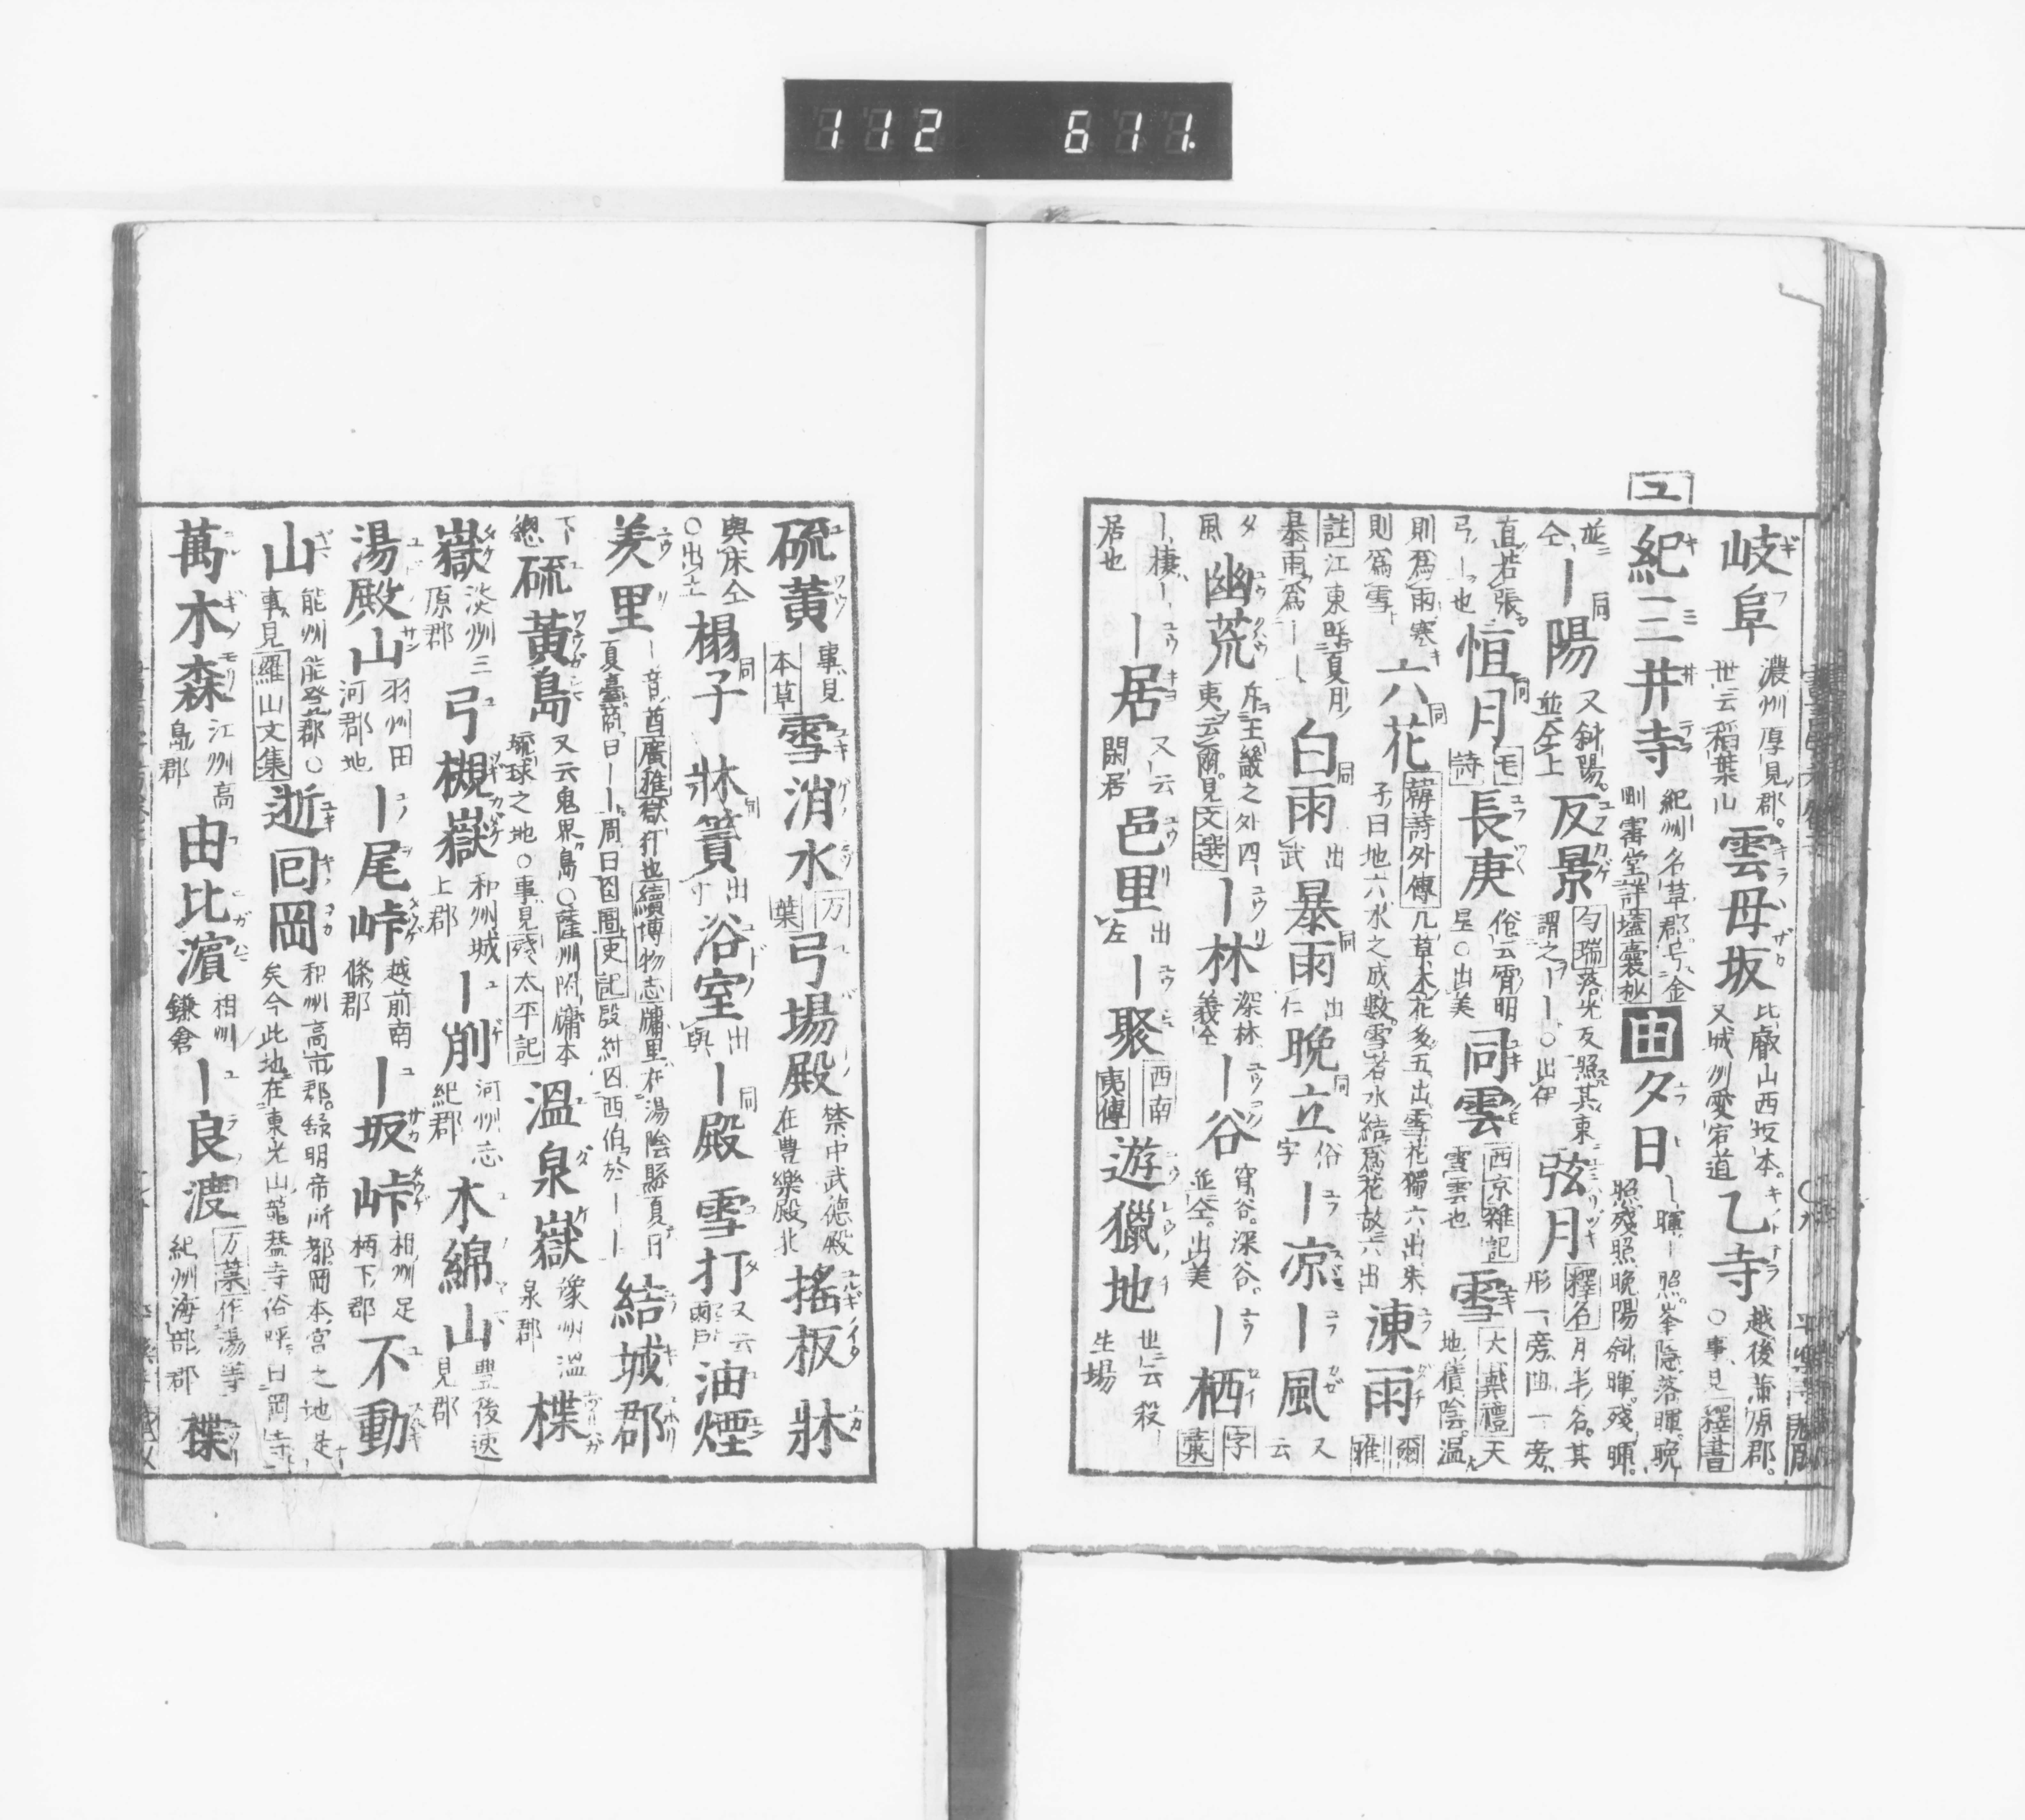 112 611.
ユ
岐阜 濃州厚見郡。世云稲葉山 雲母坂 比叡山西坂本。又城州愛宕道 乙寺 越後蒲原郡。○事見釋書
紀三井寺 紀州名草郡号金剛寶堂詳壒囊抄 由 夕日 ー暉ー照。峯隠落暉。晩照殘照晩陽斜暉。殘暉。
並仝 ー陽 又斜陽。並仝上 反景 落光反照其東謂之ーー○出 弦月 釋名月半名。其形一旁曲一旁
直若張弓ー也 恒月 毛詩 長庚 俗云霄明星○出美 同雲 西京雜記雪雲也 雪 大戴禮天地積陰。温
則爲雨寒則爲雪 六花 韓詩外傳凡草木花多五出雪花獨六出朱子曰地六水之成數雪者水結爲花故六出 凍雨 爾雅
註江東呼夏月暴雨爲ーー 白雨 出武 暴雨 出仁 晩立 俗字 ー凉 ー風 又云
夕風 幽荒 王畿之外四夷云爾。見文選 ー林 深林義仝 ー谷 窮谷。深谷。並仝。出美 ー栖 字彙
ー棲ー居也 ー居 又云閑居 邑里 出左 ー聚 西南夷傳 遊獵地 世云殺生場
硫黄 事見本草 雪消水 万葉 弓場殿 禁中武徳殿在豊樂殿北 搖板 牀
與床仝○出仝 榻子 牀簀 出 浴室 出與 ー殿 雪打 又云 油煙
羑里 ー音酉廣雅獄犴也續博物志牖里在湯陰縣夏曰夏臺商曰ーー周曰囹圄史記殷紂囚西伯於ーー 結城郡
下總 硫黄島 又云鬼界島○薩州附庸本琉球之地○事見殘太平記 溫泉嶽 豫州溫泉郡 楪
嶽 淡州三原郡 弓槻嶽 和州城上郡 ー削 河州志紀郡 木綿山 豐後速見郡
湯殿山 羽州田河郡地 ー尾峠 越前南條郡 ー坂峠 相州足柄下郡 不動
山 能州能登郡○事見羅山文集 逝回岡 和州高市郡。舒明帝所都岡本宮之地是矣今此地在東光山龍蓋寺俗呼曰岡寺
萬木森 江州高島郡 由比濵 相州鎌倉 ー良渡 万葉作湯等紀州海部郡 楪